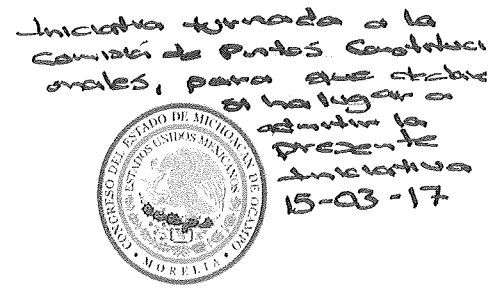 Iniciativa turnada a la
Comisión de Puntos Constituci
onales, para que declare
si ha lugar a
admitir la
presente
Iniciativa
15-03-17
CONGRESO DEL ESTADO DE MICHOACAN DE OCAMPO
ESTADOS UNIDOS MEXICANOS
MORELIA